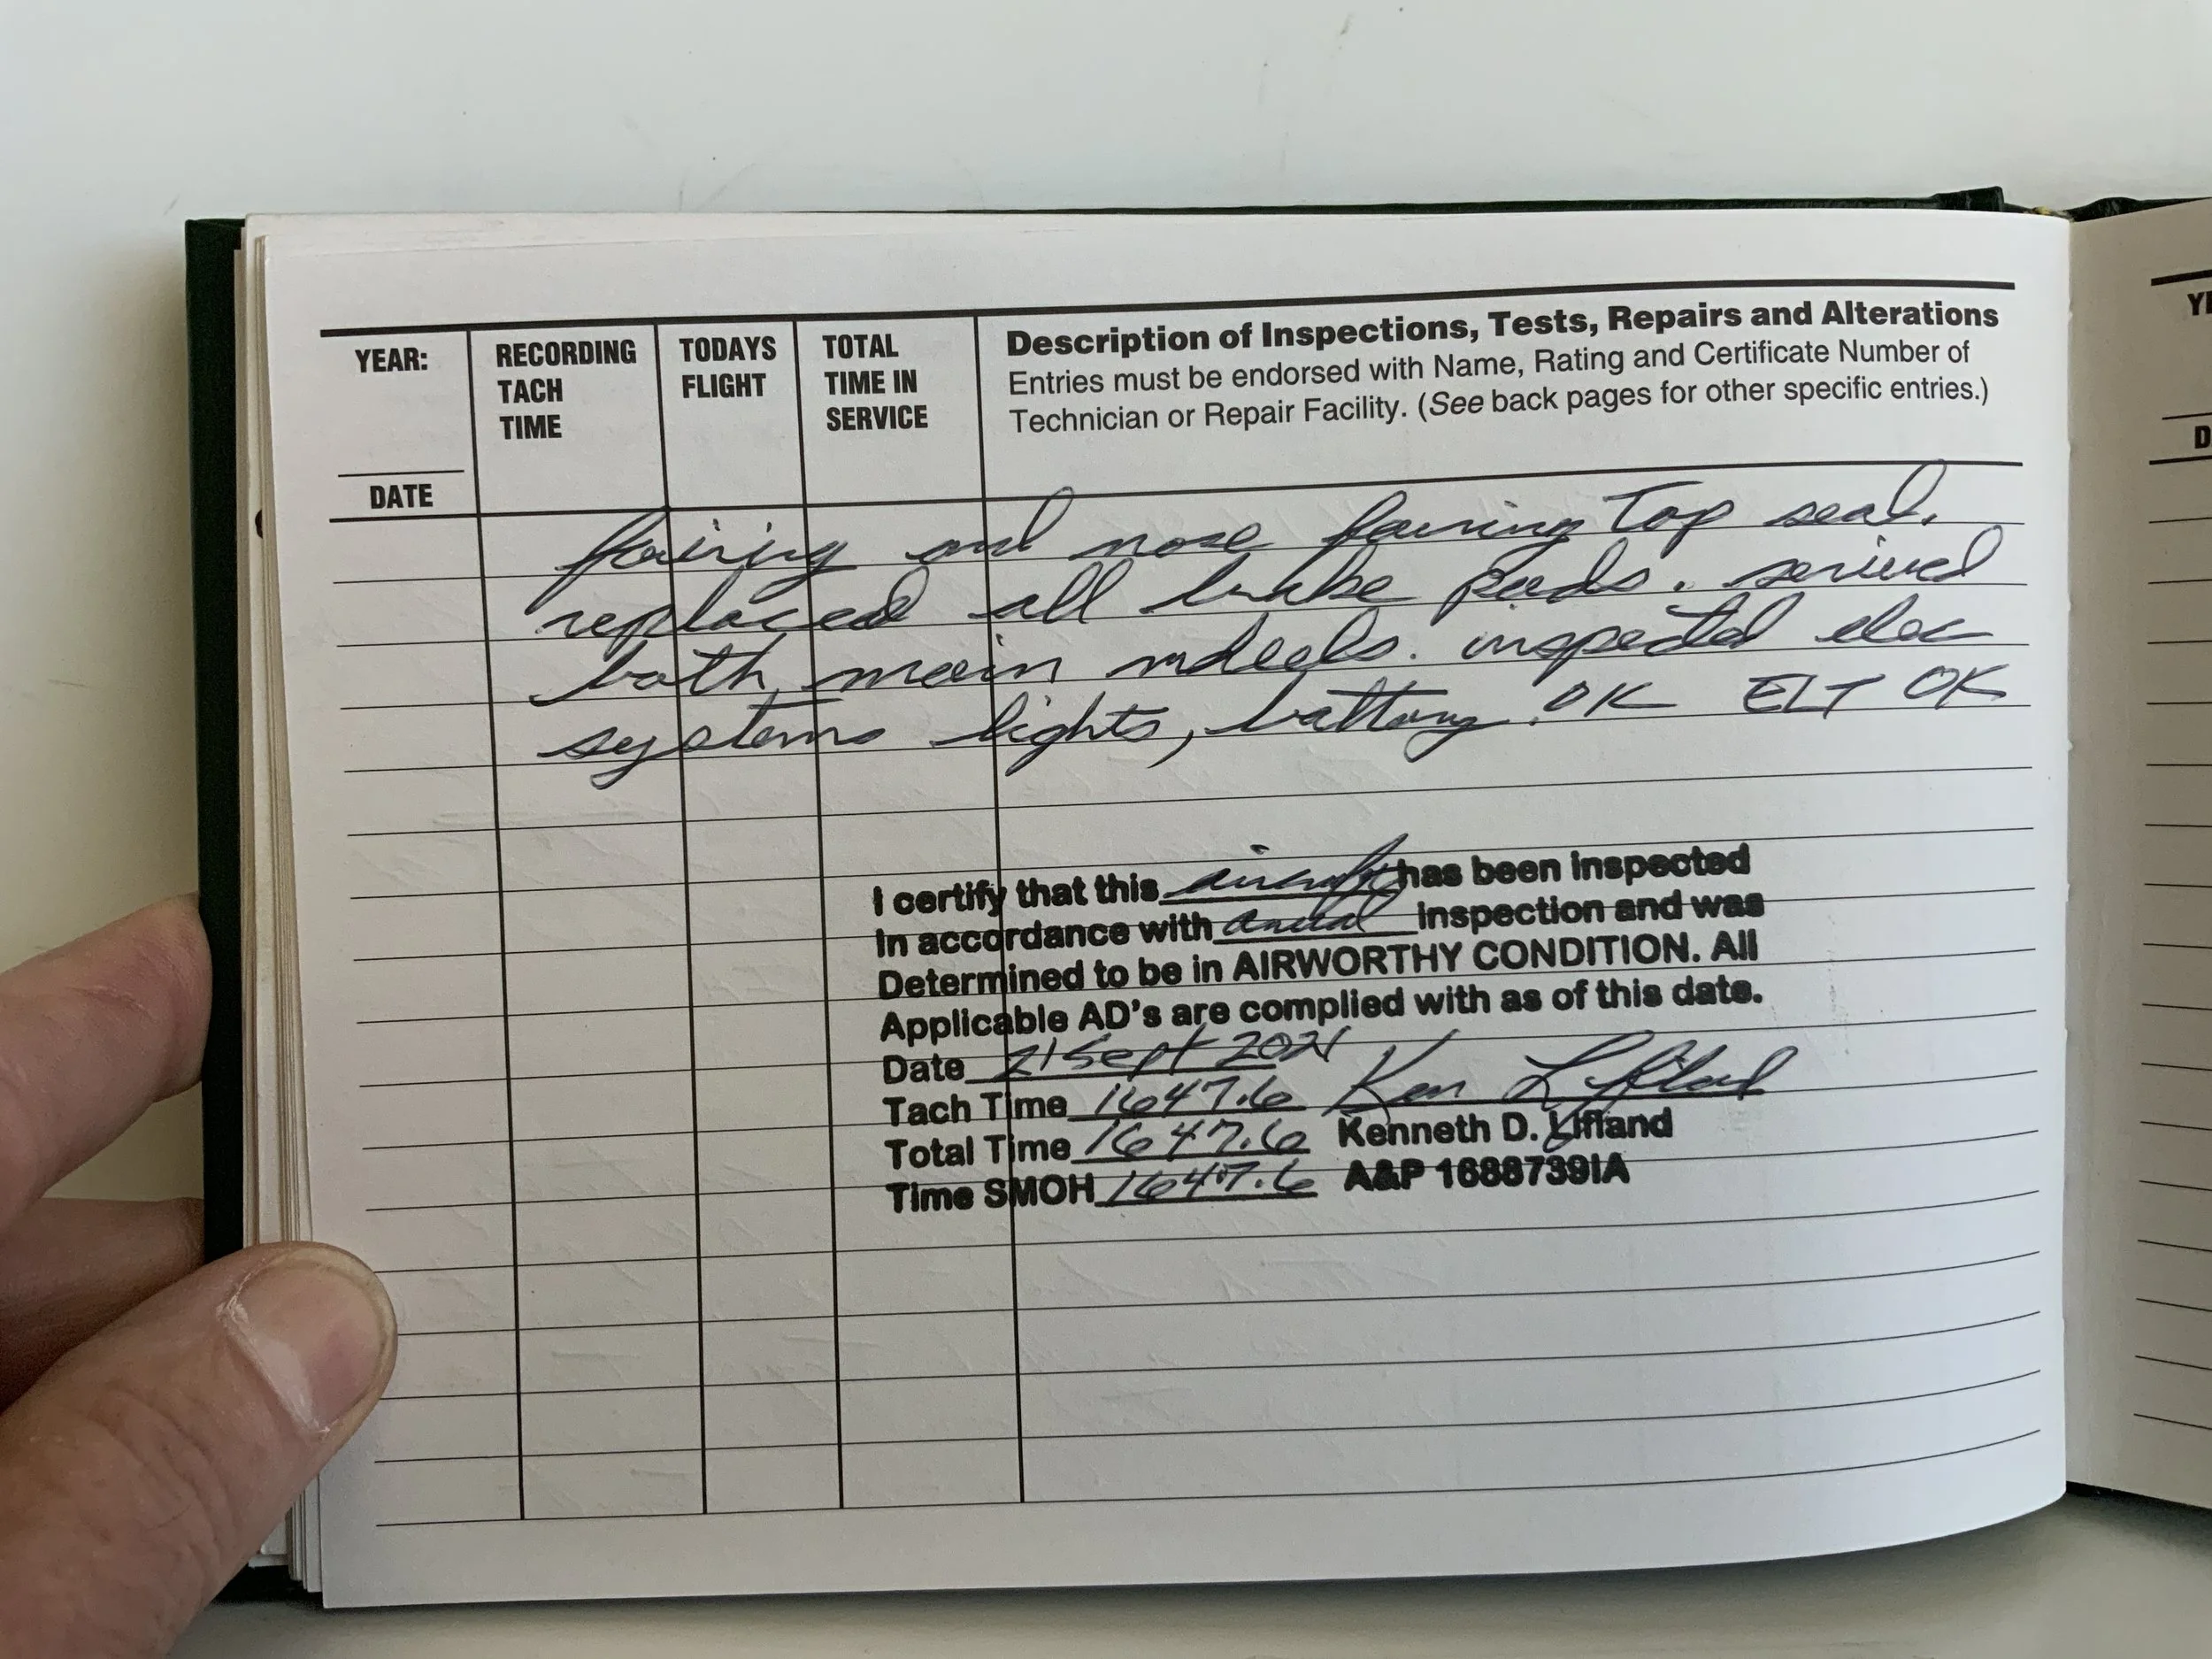 YEAR:
DATE
RECORDING
TACH
TIME
TODAYS
FLIGHT
TOTAL
TIME IN
SERVICE
Description of Inspections, Tests, Repairs and Alterations
Entries must be endorsed with Name, Rating and Certificate Number of
Technician or Repair Facility. (See back pages for other specific entries.)
fairing and nose fairing Top seal.
replaced all brake pads. serviced
both main wheels. inspected elec
systems lights, battery OK ELT OK
I certify that this aircraft has been inspected
In accordance with annual inspection and was
Determined to be in AIRWORTHY CONDITION. All
Applicable AD's are complied with as of this date.
Date 21 Sept 2021
Tach Time 1647.6 Ken Lifland
Total Time 1647.6 Kenneth D. Lifland
Time SMOH 1647.6 A&P 1688739IA